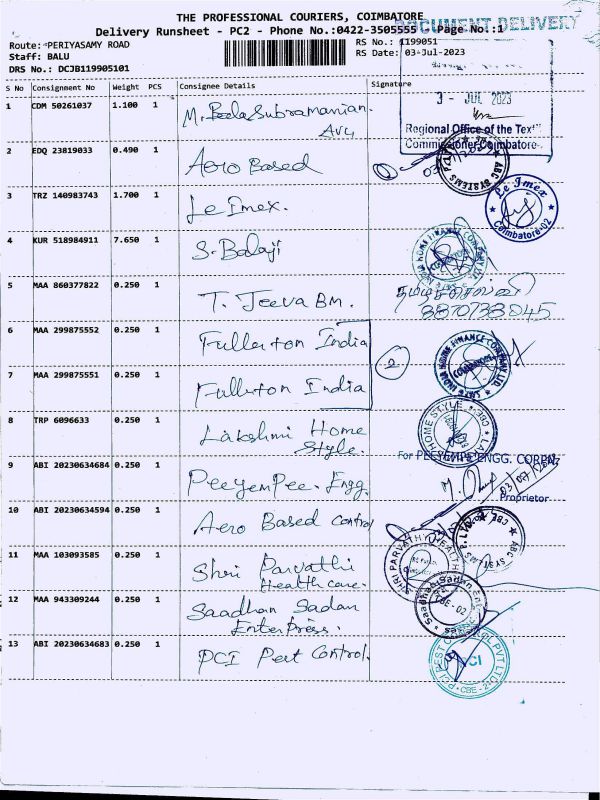 THE PROFESSIONAL COURIERS, COIMBATORE
DOCUMENT DELIVERY
Delivery Runsheet - PC2 - Phone No.:0422-3505555 Page No.:1
Route: PERIYASAMY ROAD
RS No.: 1199051
Staff: BALU
RS Date: 03-Jul-2023
DRS No.: DCJB119905101
S No Consignment No Weight PCS Consignee Details Signature
3 - JUL 2023
Regional Office of the
Coimbatore
1 CDM 50261037 1.100 1 M. BalaSubramanian.
2 EDQ 23819033 0.490 1 Aero Based
ABC SYSTEMS
3 TRZ 140983743 1.700 1 Le Imex.
Le Imex
Coimbatore-02
4 KUR 518984911 7.650 1 S. Balaji
5 MAA 860377822 0.250 1 T. Jeeva BM.
தமிழ்ச்செல்வி
8870733045
6 MAA 299875552 0.250 1 Fullerton India
7 MAA 299875551 0.250 1 Fullerton India
2
INDIA HOME FINANCE COMPANY LTD.
8 TRP 6096633 0.250 1 Lakshmi Home
Style.
HOME STYLE
For PEEYEMPE ENGG. CORPN.
9 ABI 20230634684 0.250 1 PeeyemPee. Engg.
03/07/2023
Proprietor
10 ABI 20230634594 0.250 1 Aero Based Control
11 MAA 103093585 0.250 1 Shri Parvathi
Health care.
SHRI PARVATHY HEALTH
12 MAA 943309244 0.250 1 Saadhan Sadan
Enterpress.
Saadhan Sadan
CBE - 02
13 ABI 20230634683 0.250 1 PCI Pest Control.
PCI
PVT LTD